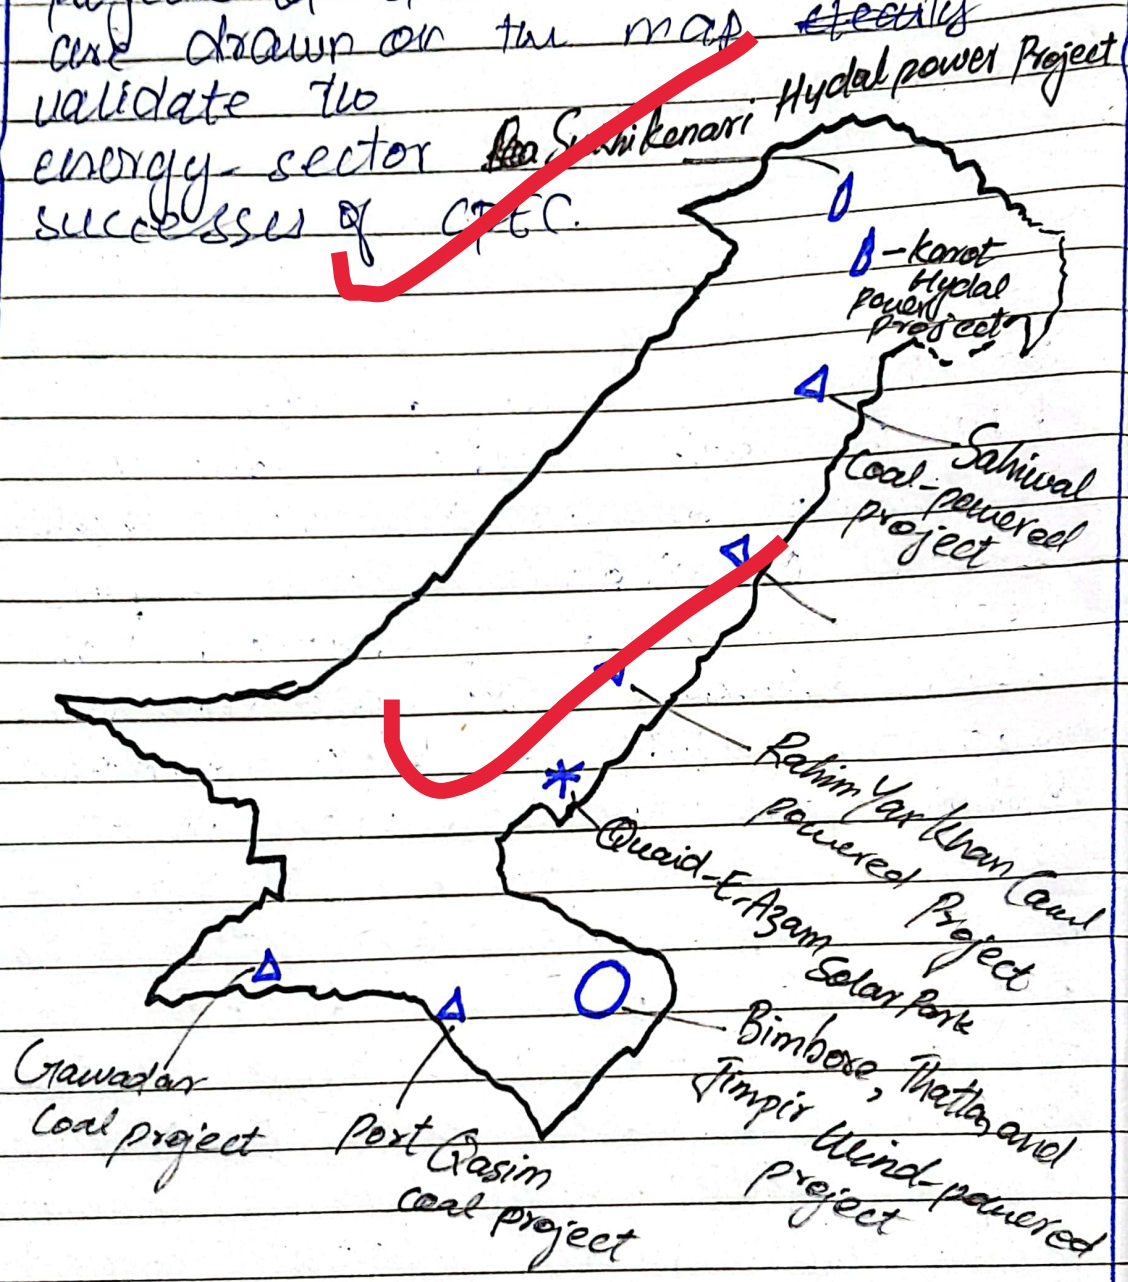 are drawn on the map
validate the
energy-sector
successes of CPEC.
Sukhi Kenari Hydal power Project
Karot
Hydal
power
project
Sahiwal
Coal-powered
project
Rahim Yar Khan Coal
powered Project
Quaid-E-Azam
Solar Park
Bimbore, Thatta, and
Jimpir Wind-powered
project
Gawadar
Coal project
Port Qasim
coal project